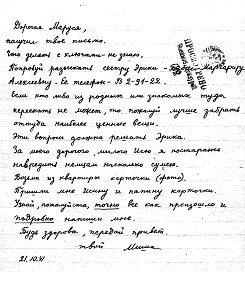 Дорогая Маруся,
получил твоё письмо.
Что делать с ключами - не знаю.
Попробуй разыскать сестру Эрики - Маргариту
Алексеевну. Её телефон - В 2-91-22.
Если кто либо из родных или знакомых туда
переехать не может, то пожалуй лучше забрать
оттуда наиболее ценные вещи.
Эти вопросы должна решать Эрика.
За моего дорогого, милого Исю я постараюсь
навредить немцам насколько сумею.
Возьми из квартиры карточки (фото).
Пришли мне Исину и папину карточки.
Узнай, пожалуйста, точно все как произошло и
подробно напиши мне.
Будь здорова, передай привет
твой Миша
21.10.41